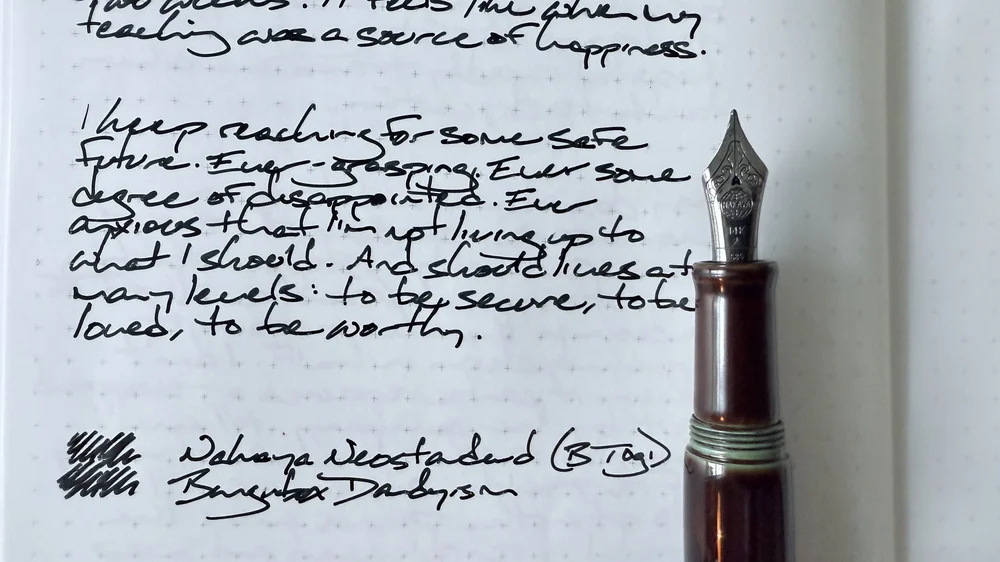 two weeks. It feels like when my
teaching was a source of happiness.
I keep reaching for some safe
future. Ever-grasping. Ever some
degree of disappointed. Ever
anxious that I'm not living up to
what I should. And should lives at
many levels: to be secure, to be
loved, to be worthy.
Nahvaya Neostandard (B Togi)
Dandyism
14K
585